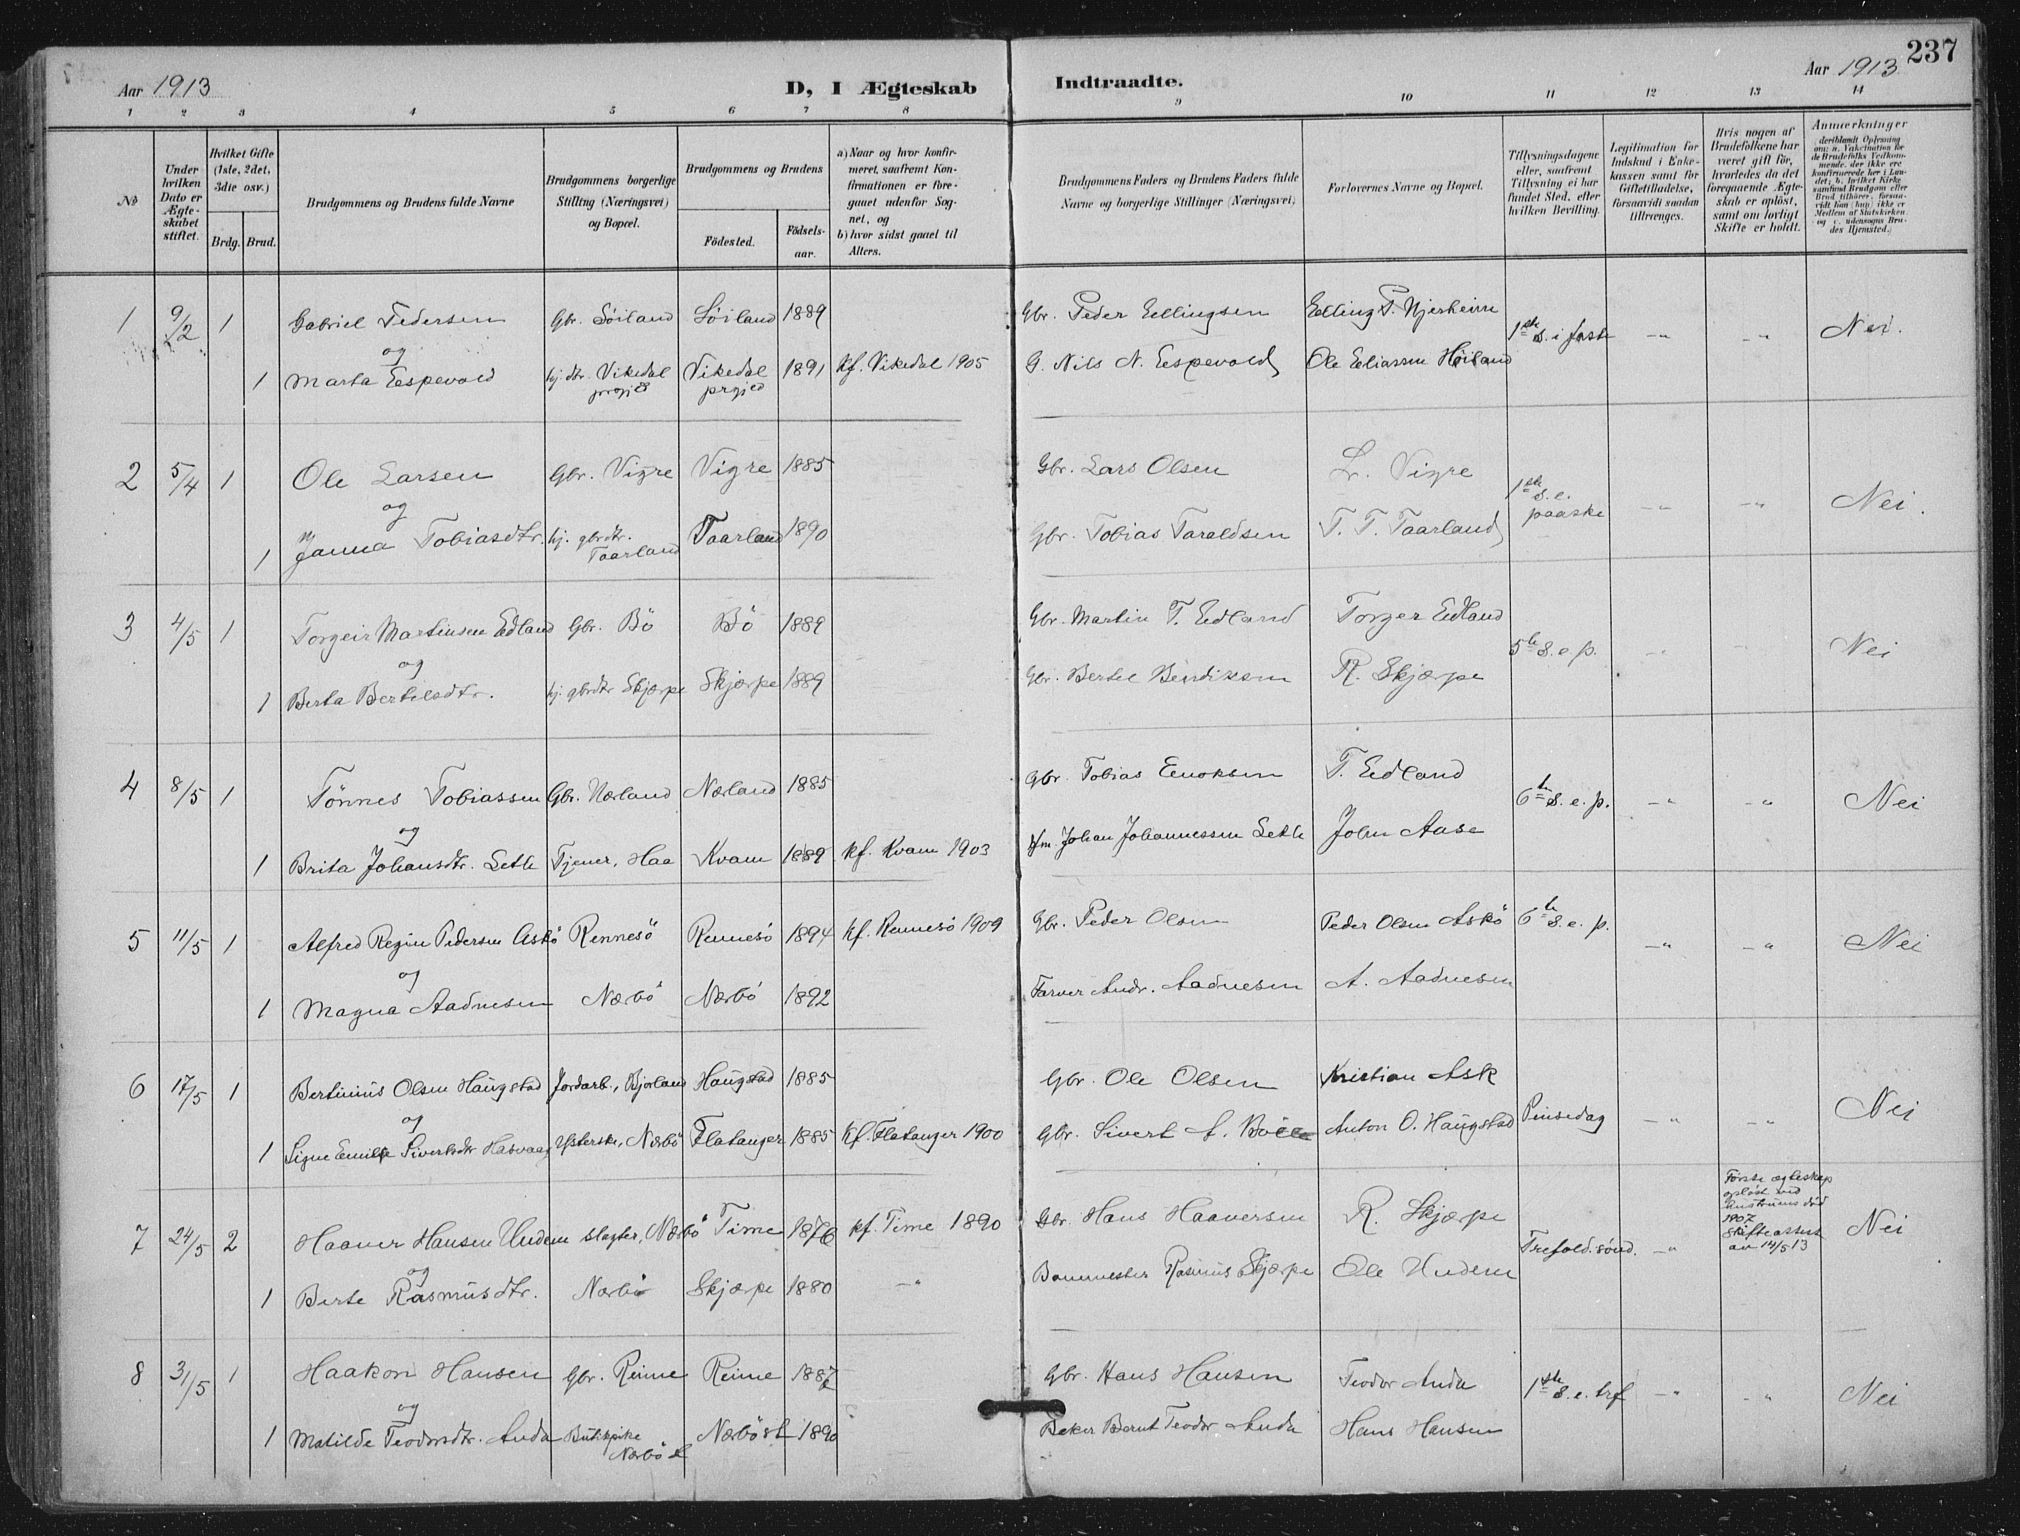 Aar 1913 D, I Ægteskab Indtraadte. Aar 1913 237
1 2 3 4 5 6 7 8 9 10 11 12 13 14
No
Under hvilken Dato er Ægteskabet stiftet.
Hvilket Gifte (1ste, 2det, 3die osv.)
Brdg. Brud.
Brudgommens og Brudens fulde Navne
Brudgommens borgerlige Stilling (Næringsvei) og Bopæl.
Brudgommens og Brudens
Födested. Födsels-aar.
a) Naar og hvor konfirmeret, saafremt Konfirmationen er foregaaet udenfor Sognet, og
b) hvor sidst gaaet til Alters.
Brudgommens Faders og Brudens Faders fulde Navne og borgerlige Stillinger (Næringsvei)
Forlovernes Navne og Bopæl.
Tillysningsdagene eller, saafremt Tillysning ei har fundet Sted, efter hvilken Bevilling.
Legitimation for Indskud i Enkekassen samt for Giftetilladelse, forsaavidt saadan tiltrænges.
Hvis nogen af Brudefolkene har været gift för, hvorledes da det foregaaende Ægteskab er oplöst, samt om lovligt Skifte er holdt.
Anmerkninger
1 9/2 1 Gabriel Pedersen Gbr. Söiland Söiland 1889 Gbr. Peder Ellingsen Elling P. Njerheim 1ste s. i faste -„- -„- Nei.
og
1 Marta Espevold hj. dtr. Vikedal prgjld Vikedal prgjld 1891 kf. Vikedal 1905 G. Nils N. Espevold Ole Eliassen Höiland
2 5/4 1 Ole Larsen Gbr. Vigre Vigre 1885 Gbr. Lars Olsen L. Vigre 1ste s. e. paaske -„- -„- Nei.
og
1 Janna Tobiasdtr. hj. gbrdtr. Taarland Taarland 1890 Gbr. Tobias Taraldsen T. T. Taarland
3 4/5 1 Torgeir Martinsen Edland Gbr. Bö Bö 1889 Gbr. Martin T. Edland Torger Edland 5te s. e. p. -„- -„- Nei
og
1 Berta Bertelsdtr. hj. gbrdtr Skjærpe Skjærpe 1889 Gbr. Bertel Bendiksen R. Skjærpe
4 8/5 1 Tönnes Tobiassen Gbr. Nærland Nærland 1885 Gbr. Tobias Enoksen T. Edland 6te s. e. p. -„- -„- Nei
og
1 Brita Johansdtr. Sette Tjener, Haa Kvam 1889 kf. Kvam 1903 Johan Johannessen Sette John Aase
5 11/5 1 Alfred Regin Pedersen Askö Rennesö Rennesö 1894 kf. Rennesö 1909 Gbr. Peder Olsen Peder Olsen Askö 6te s. e. p. -„- -„- Nei
og
1 Magna Aadnesen Nærbö Nærbö 1892 Farver Andr. Aadnesen A. Aadnesen
6 17/5 1 Bertinius Olsen Haugstad Jordarb., Bjorland Haugstad 1885 Gbr. Ole Olsen Kristian Ask Pinsedag -„- -„- Nei
og
1 Signe Sivertsdtr Hasvaag Ysterske, Nærbö Flatanger 1885 kf. Flatanger 1900 Gbr. Sivert A. Anton O. Haugstad
7 24/5 2 Haaver Hansen Undem slagter, Nærbö Time 1876 kf. Time 1890 Gbr. Hans Haaversen R. Skjærpe Trefold. sönd. -„- Förste ægteskap oplöst ved hustruens död 1907 Skifteattest av 14/5 13 Nei
og
1 Berte Rasmusdtr. Nærbö Skjærpe 1880 -„- Banemester Rasmus Skjærpe Ole Undem
8 31/5 1 Haakon Hansen Gbr. Reime Reime 1887 Gbr. Hans Hansen Teodor Anda 1ste s. e. trf -„- -„- Nei
og
1 Matilde Teodorsdtr. Anda Butikpike Nærbö st Nærbö st 1890 Beker Bernt Teodor Anda Hans Hansen